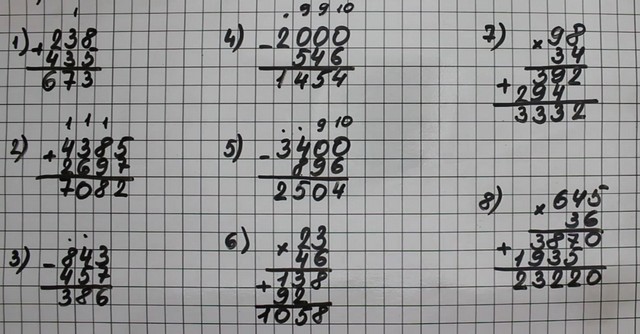 1)
1
+238
435
673
2)
1 1 1
+4385
2697
7082
3)
. .
-843
457
386
4)
. 9 9 10
-2000
546
1454
5)
. . 9 10
-3400
896
2504
6)
×23
46
+138
92
1058
7)
×98
34
+392
294
3332
8)
×645
36
+3870
1935
23220